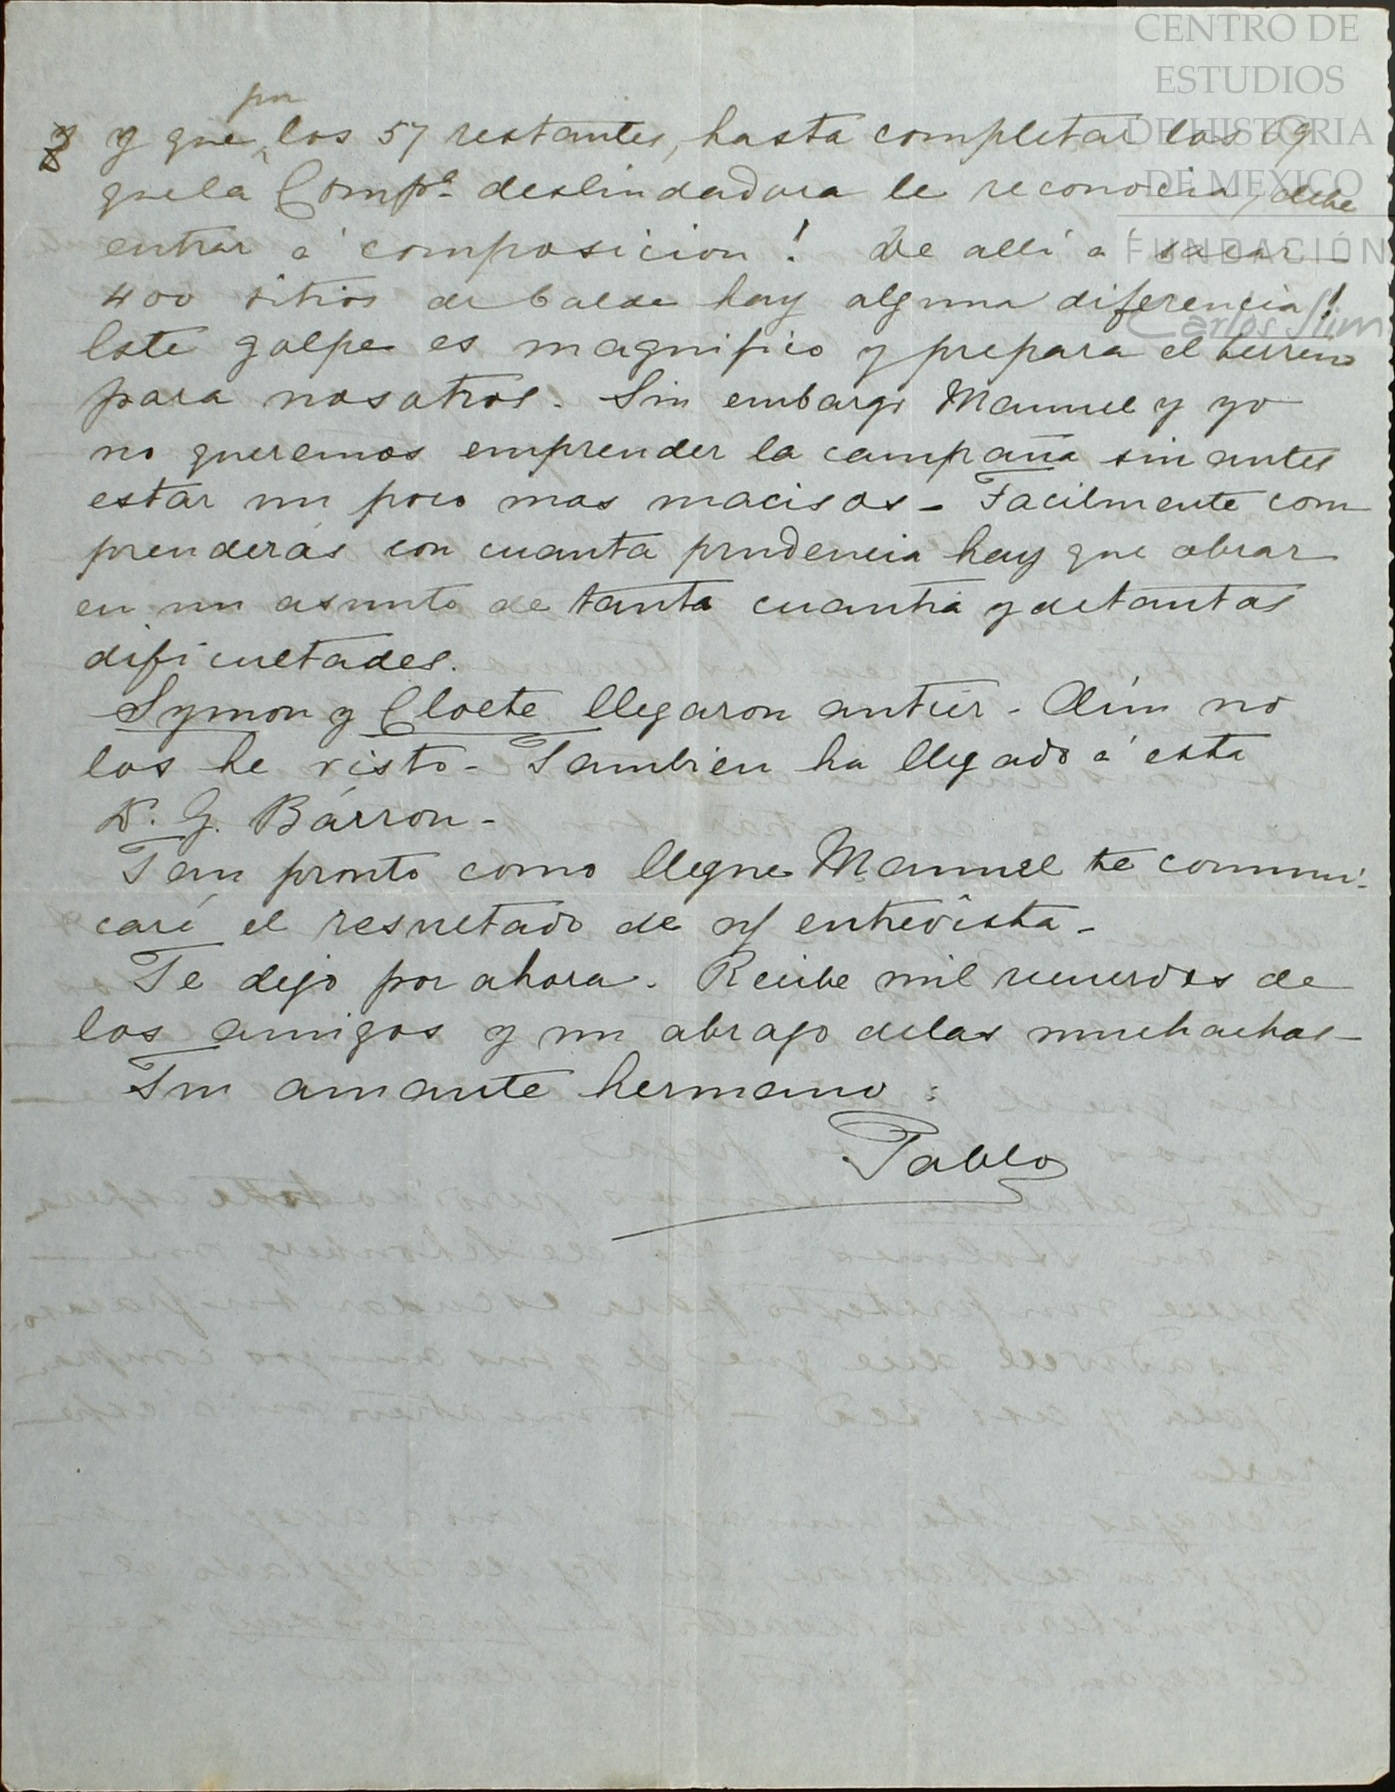 CENTRO DE
ESTUDIOS
DE HISTORIA
DE MEXICO
FUNDACIÓN
Carlos Slim
por
y y que los 57 restantes, hasta completar los 69
que la Compª deslindadora le reconocia, debe
entrar á composicion! De allí á sacar
400 sitios de balde hay alguna diferencia!
Este golpe es magnifico y prepara el terreno
para nosotros. Sin embargo Manuel y yo
no queremos emprender la campaña sin antes
estar un poco mas macisos - Facilmente com
prenderás con cuanta prudencia hay que obrar
en un asunto de tanta cuantia y de tantas
dificultades.
Symon y Cloete llegaron antier - Aún no
los he visto - Tambien ha llegado á esta
D. G. Bárron -
Tan pronto como llegue Manuel te comuni-
caré el resultado de n/ entrevista -
Te dejo por ahora. Recibe mil recuerdos de
los amigos y un abrazo de las muchachas -
Tu amante hermano:
Pablo